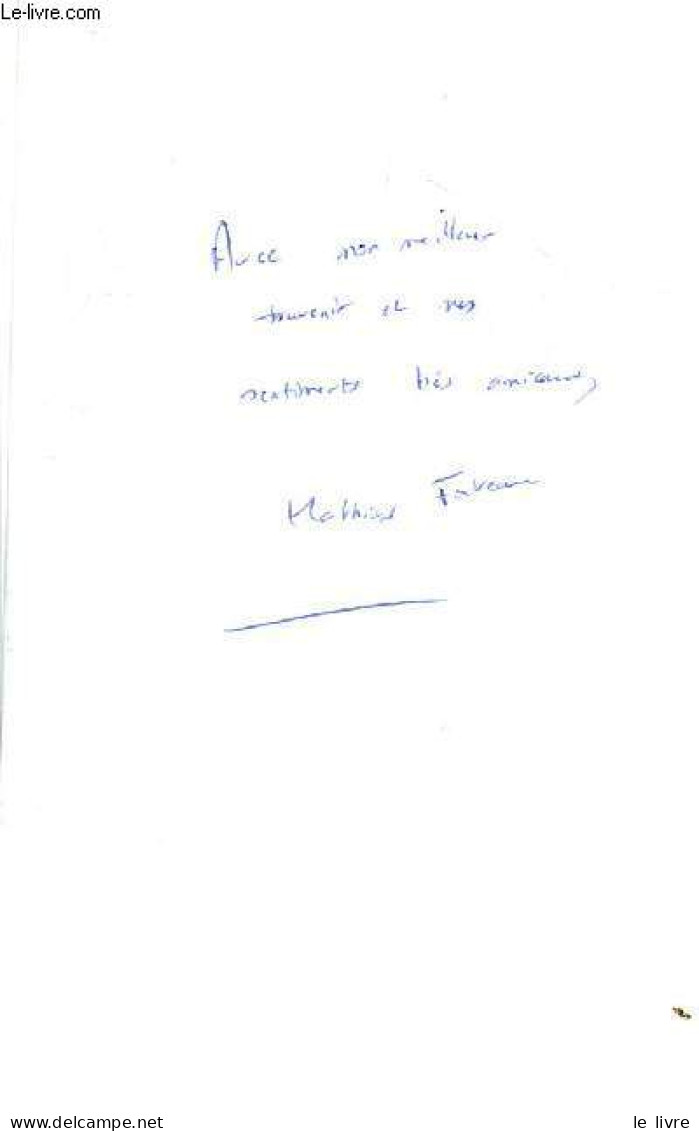 Le-livre.com
Avec mon meilleur
souvenir et mes
sentiments très amicaux,
Mathieu
www.delcampe.net
le livre